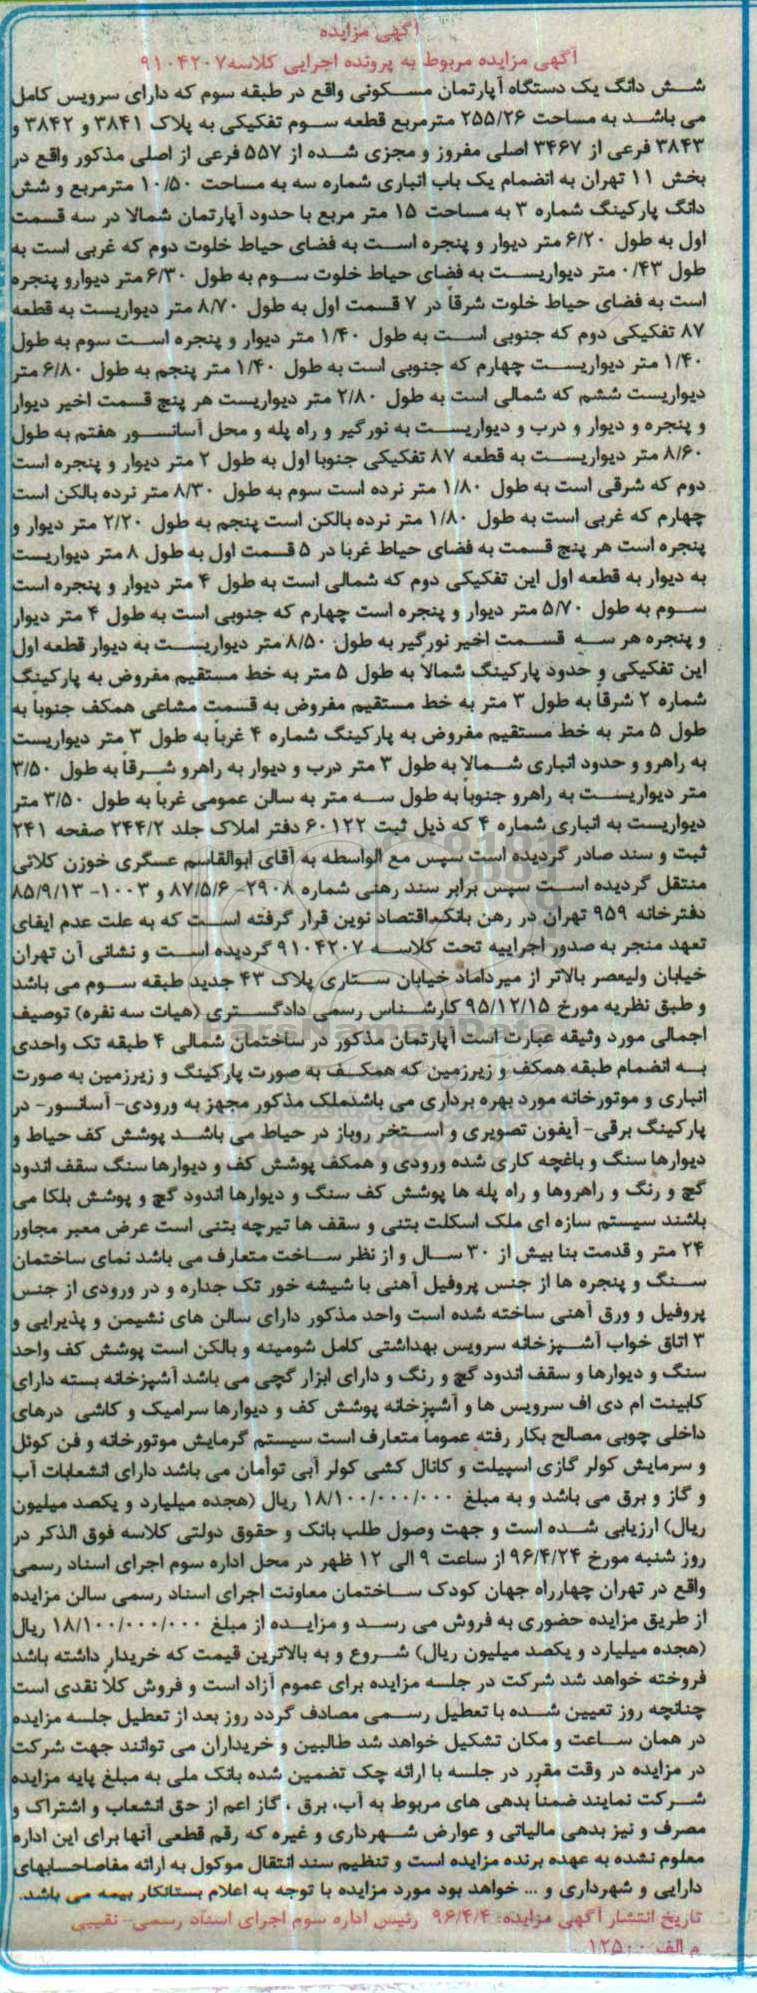 آگهی مزایده
آگهی مزایده مربوط به پرونده اجرایی کلاسه ۹۱۰۴۲۰۷
شش دانگ یک دستگاه آپارتمان مسکونی واقع در طبقه سوم که دارای سرویس کامل
می باشد به مساحت ۲۵۵/۲۶ مترمربع قطعه سوم تفکیکی به پلاک ۳۸۴۱ و ۳۸۴۲ و
۳۸۴۳ فرعی از ۳۴۶۷ اصلی مفروز و مجزی شده از ۵۵۷ فرعی از اصلی مذکور واقع در
بخش ۱۱ تهران به انضمام یک باب انباری شماره سه به مساحت ۱۰/۵۰ مترمربع و شش
دانگ پارکینگ شماره ۳ به مساحت ۱۵ متر مربع با حدود آپارتمان شمالا در سه قسمت
اول به طول ۶/۲۰ متر دیوار و پنجره است به فضای حیاط خلوت دوم که غربی است به
طول ۰/۴۳ متر دیواریست به فضای حیاط خلوت سوم به طول ۶/۳۰ متر دیوارو پنجره
است به فضای حیاط خلوت شرقاً در ۷ قسمت اول به طول ۸/۷۰ متر دیواریست به قطعه
۸۷ تفکیکی دوم که جنوبی است به طول ۱/۴۰ متر دیوار و پنجره است سوم به طول
۱/۴۰ متر دیواریست چهارم که جنوبی است به طول ۱/۴۰ متر پنجم به طول ۶/۸۰ متر
دیواریست ششم که شمالی است به طول ۲/۸۰ متر دیواریست هر پنج قسمت اخیر دیوار
و پنجره و دیوار و درب و دیواریست به نورگیر و راه پله و محل آسانسور هفتم به طول
۸/۶۰ متر دیواریست به قطعه ۸۷ تفکیکی جنوبا اول به طول ۲ متر دیوار و پنجره است
دوم که شرقی است به طول ۱/۸۰ متر نرده است سوم به طول ۸/۳۰ متر نرده بالکن است
چهارم که غربی است به طول ۱/۸۰ متر نرده بالکن است پنجم به طول ۲/۲۰ متر دیوار و
پنجره است هر پنج قسمت به فضای حیاط غربا در ۵ قسمت اول به طول ۸ متر دیواریست
به دیوار به قطعه اول این تفکیکی دوم که شمالی است به طول ۴ متر دیوار و پنجره است
سوم به طول ۵/۷۰ متر دیوار و پنجره است چهارم که جنوبی است به طول ۴ متر دیوار
و پنجره هر سه قسمت اخیر نورگیر به طول ۸/۵۰ متر دیواریست به دیوار قطعه اول
این تفکیکی و حدود پارکینگ شمالاً به طول ۵ متر به خط مستقیم مفروض به پارکینگ
شماره ۲ شرقاً به طول ۳ متر به خط مستقیم مفروض به قسمت مشاعی همکف جنوباً به
طول ۵ متر به خط مستقیم مفروض به پارکینگ شماره ۴ غرباً به طول ۳ متر دیواریست
به راهرو و حدود انباری شمالا به طول ۳ متر درب و دیوار به راهرو شرقاً به طول ۳/۵۰
متر دیواریست به راهرو جنوباً به طول سه متر به سالن عمومی غرباً به طول ۳/۵۰ متر
دیواریست به انباری شماره ۴ که ذیل ثبت ۶۰۱۲۲ دفتر املاک جلد ۲۴۴/۲ صفحه ۲۴۱
ثبت و سند صادر گردیده است سپس مع الواسطه به آقای ابوالقاسم عسگری خوزن کلائی
منتقل گردیده است سپس برابر سند رهنی شماره ۲۹۰۸- ۸۷/۵/۶ و ۱۰۰۳- ۸۵/۹/۱۳
دفترخانه ۹۵۹ تهران در رهن بانک اقتصاد نوین قرار گرفته است که به علت عدم ایفای
تعهد منجر به صدور اجراییه تحت کلاسه ۹۱۰۴۲۰۷ گردیده است و نشانی آن تهران
خیابان ولیعصر بالاتر از میرداماد خیابان ستاری پلاک ۴۳ جدید طبقه سوم می باشد
و طبق نظریه مورخ ۹۵/۱۲/۱۵ کارشناس رسمی دادگستری (هیات سه نفره) توصیف
اجمالی مورد وثیقه عبارت است آپارتمان مذکور در ساختمان شمالی ۴ طبقه تک واحدی
به انضمام طبقه همکف و زیرزمین که همکف به صورت پارکینگ و زیرزمین به صورت
انباری و موتورخانه مورد بهره برداری می باشدملک مذکور مجهز به ورودی- آسانسور- در
پارکینگ برقی- آیفون تصویری و استخر روباز در حیاط می باشد پوشش کف حیاط و
دیوارها سنگ و باغچه کاری شده ورودی و همکف پوشش کف و دیوارها سنگ سقف اندود
گچ و رنگ و راهروها و راه پله ها پوشش کف سنگ و دیوارها اندود گچ و پوشش بلکا می
باشند سیستم سازه ای ملک اسکلت بتنی و سقف ها تیرچه بتنی است عرض معبر مجاور
۲۴ متر و قدمت بنا بیش از ۳۰ سال و از نظر ساخت متعارف می باشد نمای ساختمان
سنگ و پنجره ها از جنس پروفیل آهنی با شیشه خور تک جداره و در ورودی از جنس
پروفیل و ورق آهنی ساخته شده است واحد مذکور دارای سالن های نشیمن و پذیرایی و
۳ اتاق خواب آشپزخانه سرویس بهداشتی کامل شومینه و بالکن است پوشش کف واحد
سنگ و دیوارها و سقف اندود گچ و رنگ و دارای ابزار گچی می باشد آشپزخانه بسته دارای
کابینت ام دی اف سرویس ها و آشپزخانه پوشش کف و دیوارها سرامیک و کاشی درهای
داخلی چوبی مصالح بکار رفته عموماً متعارف است سیستم گرمایش موتورخانه و فن کوئل
و سرمایش کولر گازی اسپیلت و کانال کشی کولر آبی توأمان می باشد دارای انشعابات آب
و گاز و برق می باشد و به مبلغ ۱۸/۱۰۰/۰۰۰/۰۰۰ ریال (هجده میلیارد و یکصد میلیون
ریال) ارزیابی شده است و جهت وصول طلب بانک و حقوق دولتی کلاسه فوق الذکر در
روز شنبه مورخ ۹۶/۴/۲۴ از ساعت ۹ الی ۱۲ ظهر در محل اداره سوم اجرای اسناد رسمی
واقع در تهران چهارراه جهان کودک ساختمان معاونت اجرای اسناد رسمی سالن مزایده
از طریق مزایده حضوری به فروش می رسد و مزایده از مبلغ ۱۸/۱۰۰/۰۰۰/۰۰۰ ریال
(هجده میلیارد و یکصد میلیون ریال) شروع و به بالاترین قیمت که خریدار داشته باشد
فروخته خواهد شد شرکت در جلسه مزایده برای عموم آزاد است و فروش کلاً نقدی است
چنانچه روز تعیین شده با تعطیل رسمی مصادف گردد روز بعد از تعطیل جلسه مزایده
در همان ساعت و مکان تشکیل خواهد شد طالبین و خریداران می توانند جهت شرکت
در مزایده در وقت مقرر در جلسه با ارائه چک تضمین شده بانک ملی به مبلغ پایه مزایده
شرکت نمایند ضمناً بدهی های مربوط به آب، برق ، گاز اعم از حق انشعاب و اشتراک و
مصرف و نیز بدهی مالیاتی و عوارض شهرداری و غیره که رقم قطعی آنها برای این اداره
معلوم نشده به عهده برنده مزایده است و تنظیم سند انتقال موکول به ارائه مفاصاحسابهای
دارایی و شهرداری و ... خواهد بود مورد مزایده با توجه به اعلام بستانکار بیمه می باشد.
تاریخ انتشار آگهی مزایده: ۹۶/۴/۴ رئیس اداره سوم اجرای اسناد رسمی- نقیبی
م الف ۱۲۵۰۰
ParsNamadData